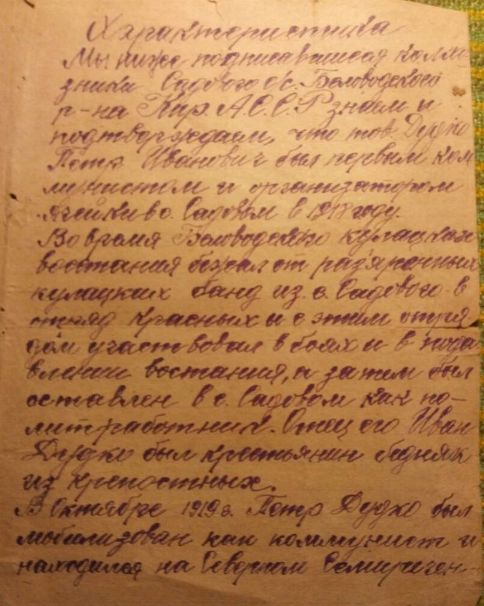 Характористика
Мы ниже подписавшиеся колхо-
зники Садового с/с. Беловодского
р-на Кир. А.С.С.Р знаем и
подтверждаем, что тов Дудко
Петр Иванович был первым ком
мунистом и организатором
ячейки во. Садовом в 1917 году.
Во время Беловодского кулацкого
востания бежал от раз'яренных
кулацких банд из. с. Садового в
отряд красных и с этим отря
дом участвовал в боях и в пода
влении востания, а затем был
оставлен в с. Садовом как по-
литработник. Отец его Иван
Дудко был крестьянин бедняк
из крепостных.
В Октябре 1919 г. Петр Дудко был
мобилизован как коммунист и
находился на Северном Семиречен-